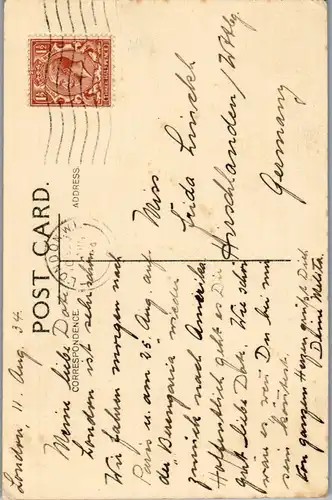 POST CARD.
CORRESPONDENCE
ADDRESS
London, 11. Aug. 34.
Meine liebe Dote!
London ist sehr schön.
Wir fahren morgen nach
Paris u. am 25. Aug. auf
der "Berengaria" wieder
zurück nach Amerika.
Hoffentlich geht es Dir
gut liebe Dote. Wie schön
wäre es wenn Du bei mir
sein könntest.
Von ganzem Herzen grüsst Dich
Deine Meta.
Miss
Frida
Hirschlanden / Wttbg.
Germany
1½
1½